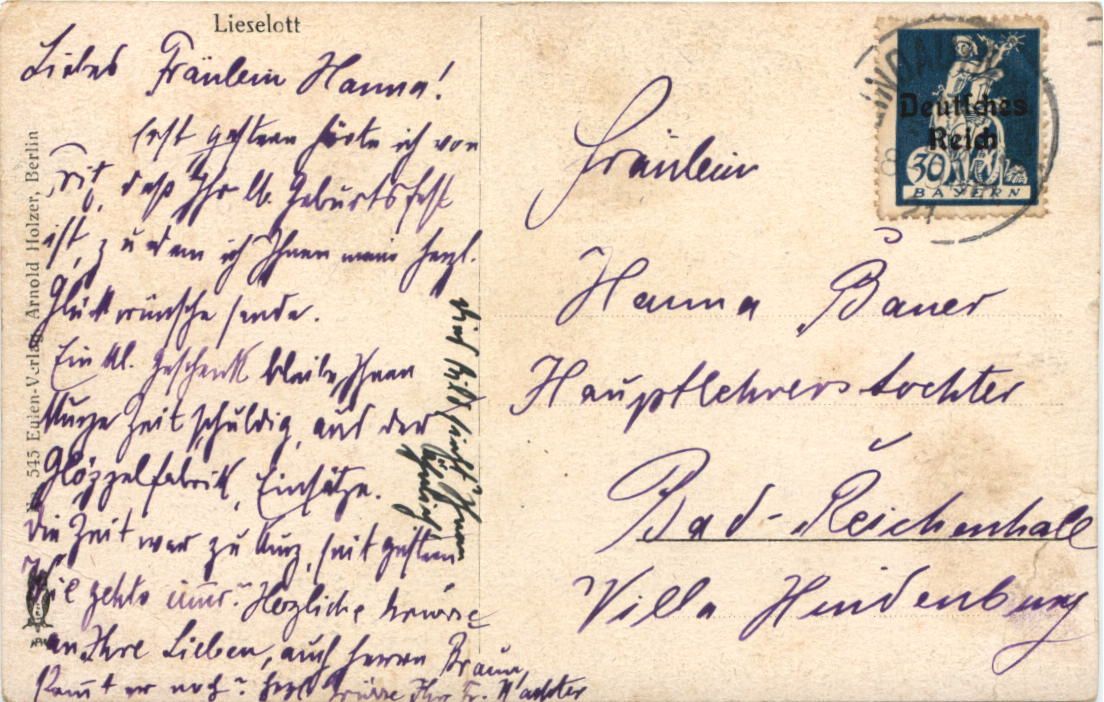 Lieselott
Liebes Fräulein Hanna!
Erst gestern hörte ich von
daß Ihr lb. Geburtsfest
ist, zu dem ich Ihnen meine herzl.
Glückwünsche sende.
Ein kl. Geschenk bleibe Ihnen
kurze Zeit schuldig, aus der
Glöppelfabrik, Einsätze.
Die Zeit war zu kurz, seit gestern
Wie gehts immer? Herzliche Grüsse
an Ihre Lieben, auch Herrn Braun,
er noch? herzl. Grüsse Ihr Fr. Wachter
Ihnen
No. 545 Eulen-Verlag Arnold Holzer, Berlin
Deutsches
Reich
30
BAYERN
Fräulein
Hanna Bauer
Hauptlehrerstochter
Bad-Reichenhall
Villa Hindenburg